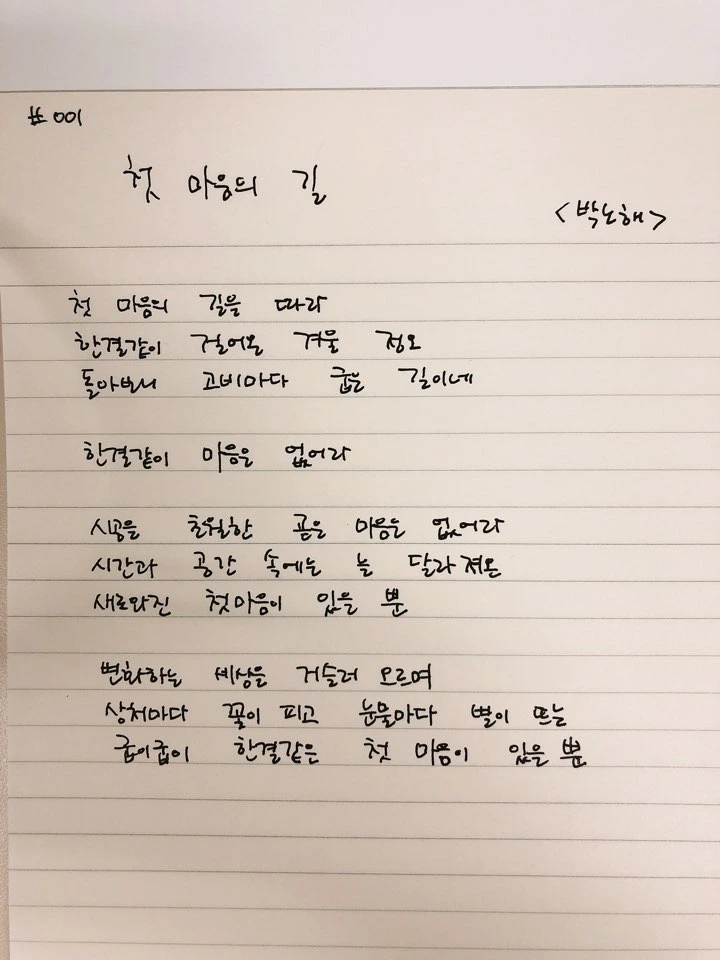 # 001
첫 마음의 길
<박노해>
첫 마음의 길을 따라
한결같이 걸어온 겨울 정오
돌아보니 고비마다 굽은 길이네
한결같이 마음은 없어라
시공을 초월한 곧은 마음은 없어라
시간과 공간 속에는 늘 달라져온
새로와진 첫마음이 있을 뿐
변화하는 세상을 거슬러 오르며
상처마다 꽃이 피고 눈물마다 별이 뜨는
굽이굽이 한결같은 첫 마음이 있을 뿐